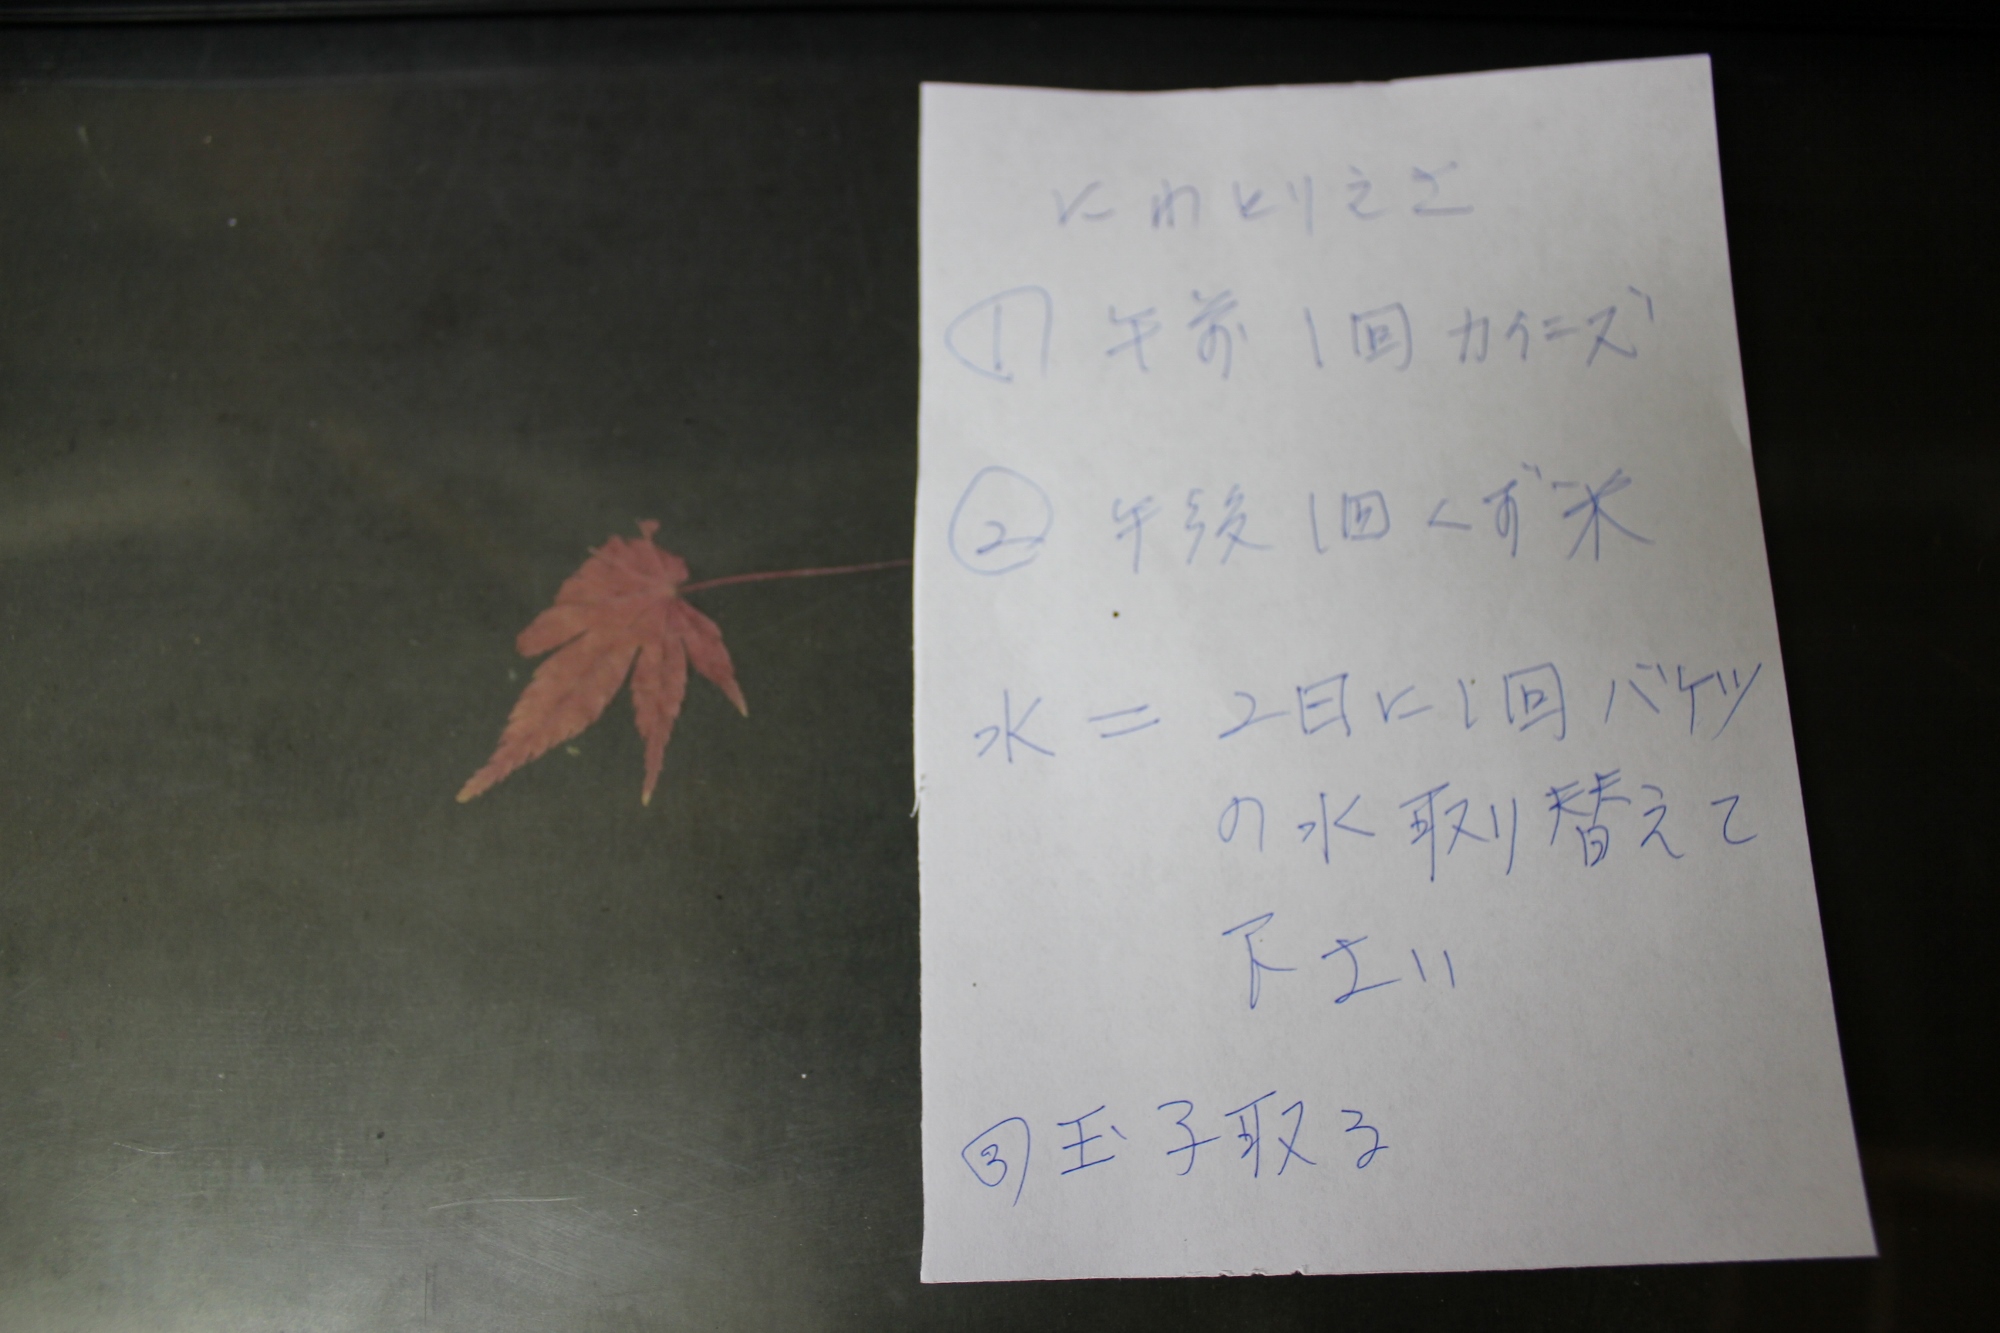 にわとりえさ
① 午前1回カインズ
② 午後1回くず米
水=2日に1回バケツ
の水取り替えて
下さい
③ 玉子取る